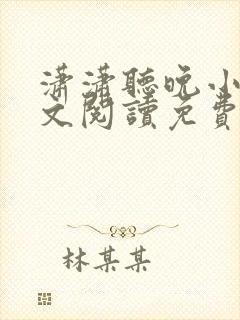 瀟瀟聽晚小
文閱讀免費
林某某